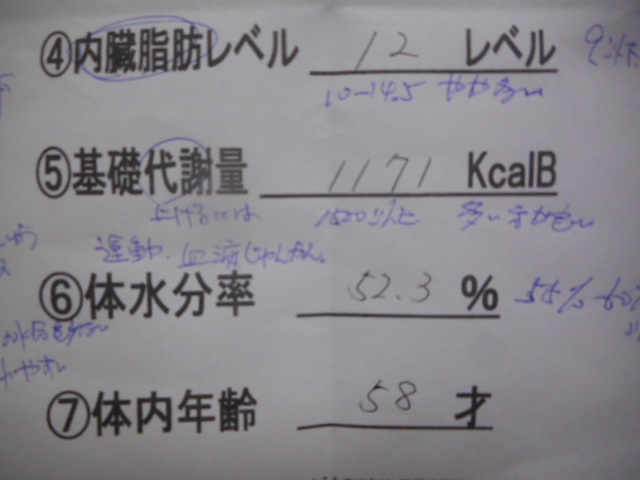 ④内臓脂肪レベル 12 レベル 9以下
10-14.5 やや多い
⑤基礎代謝量 1171 KcalB
上げるには 1500以上 多い方が良い
運動. 血液じゅんかん。
⑥体水分率 52.3 % 55%-60%
⑦体内年齢 58 才